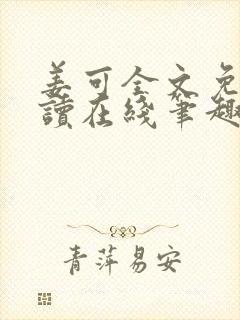 姜可全文免
讀在綫筆趣
青萍易安